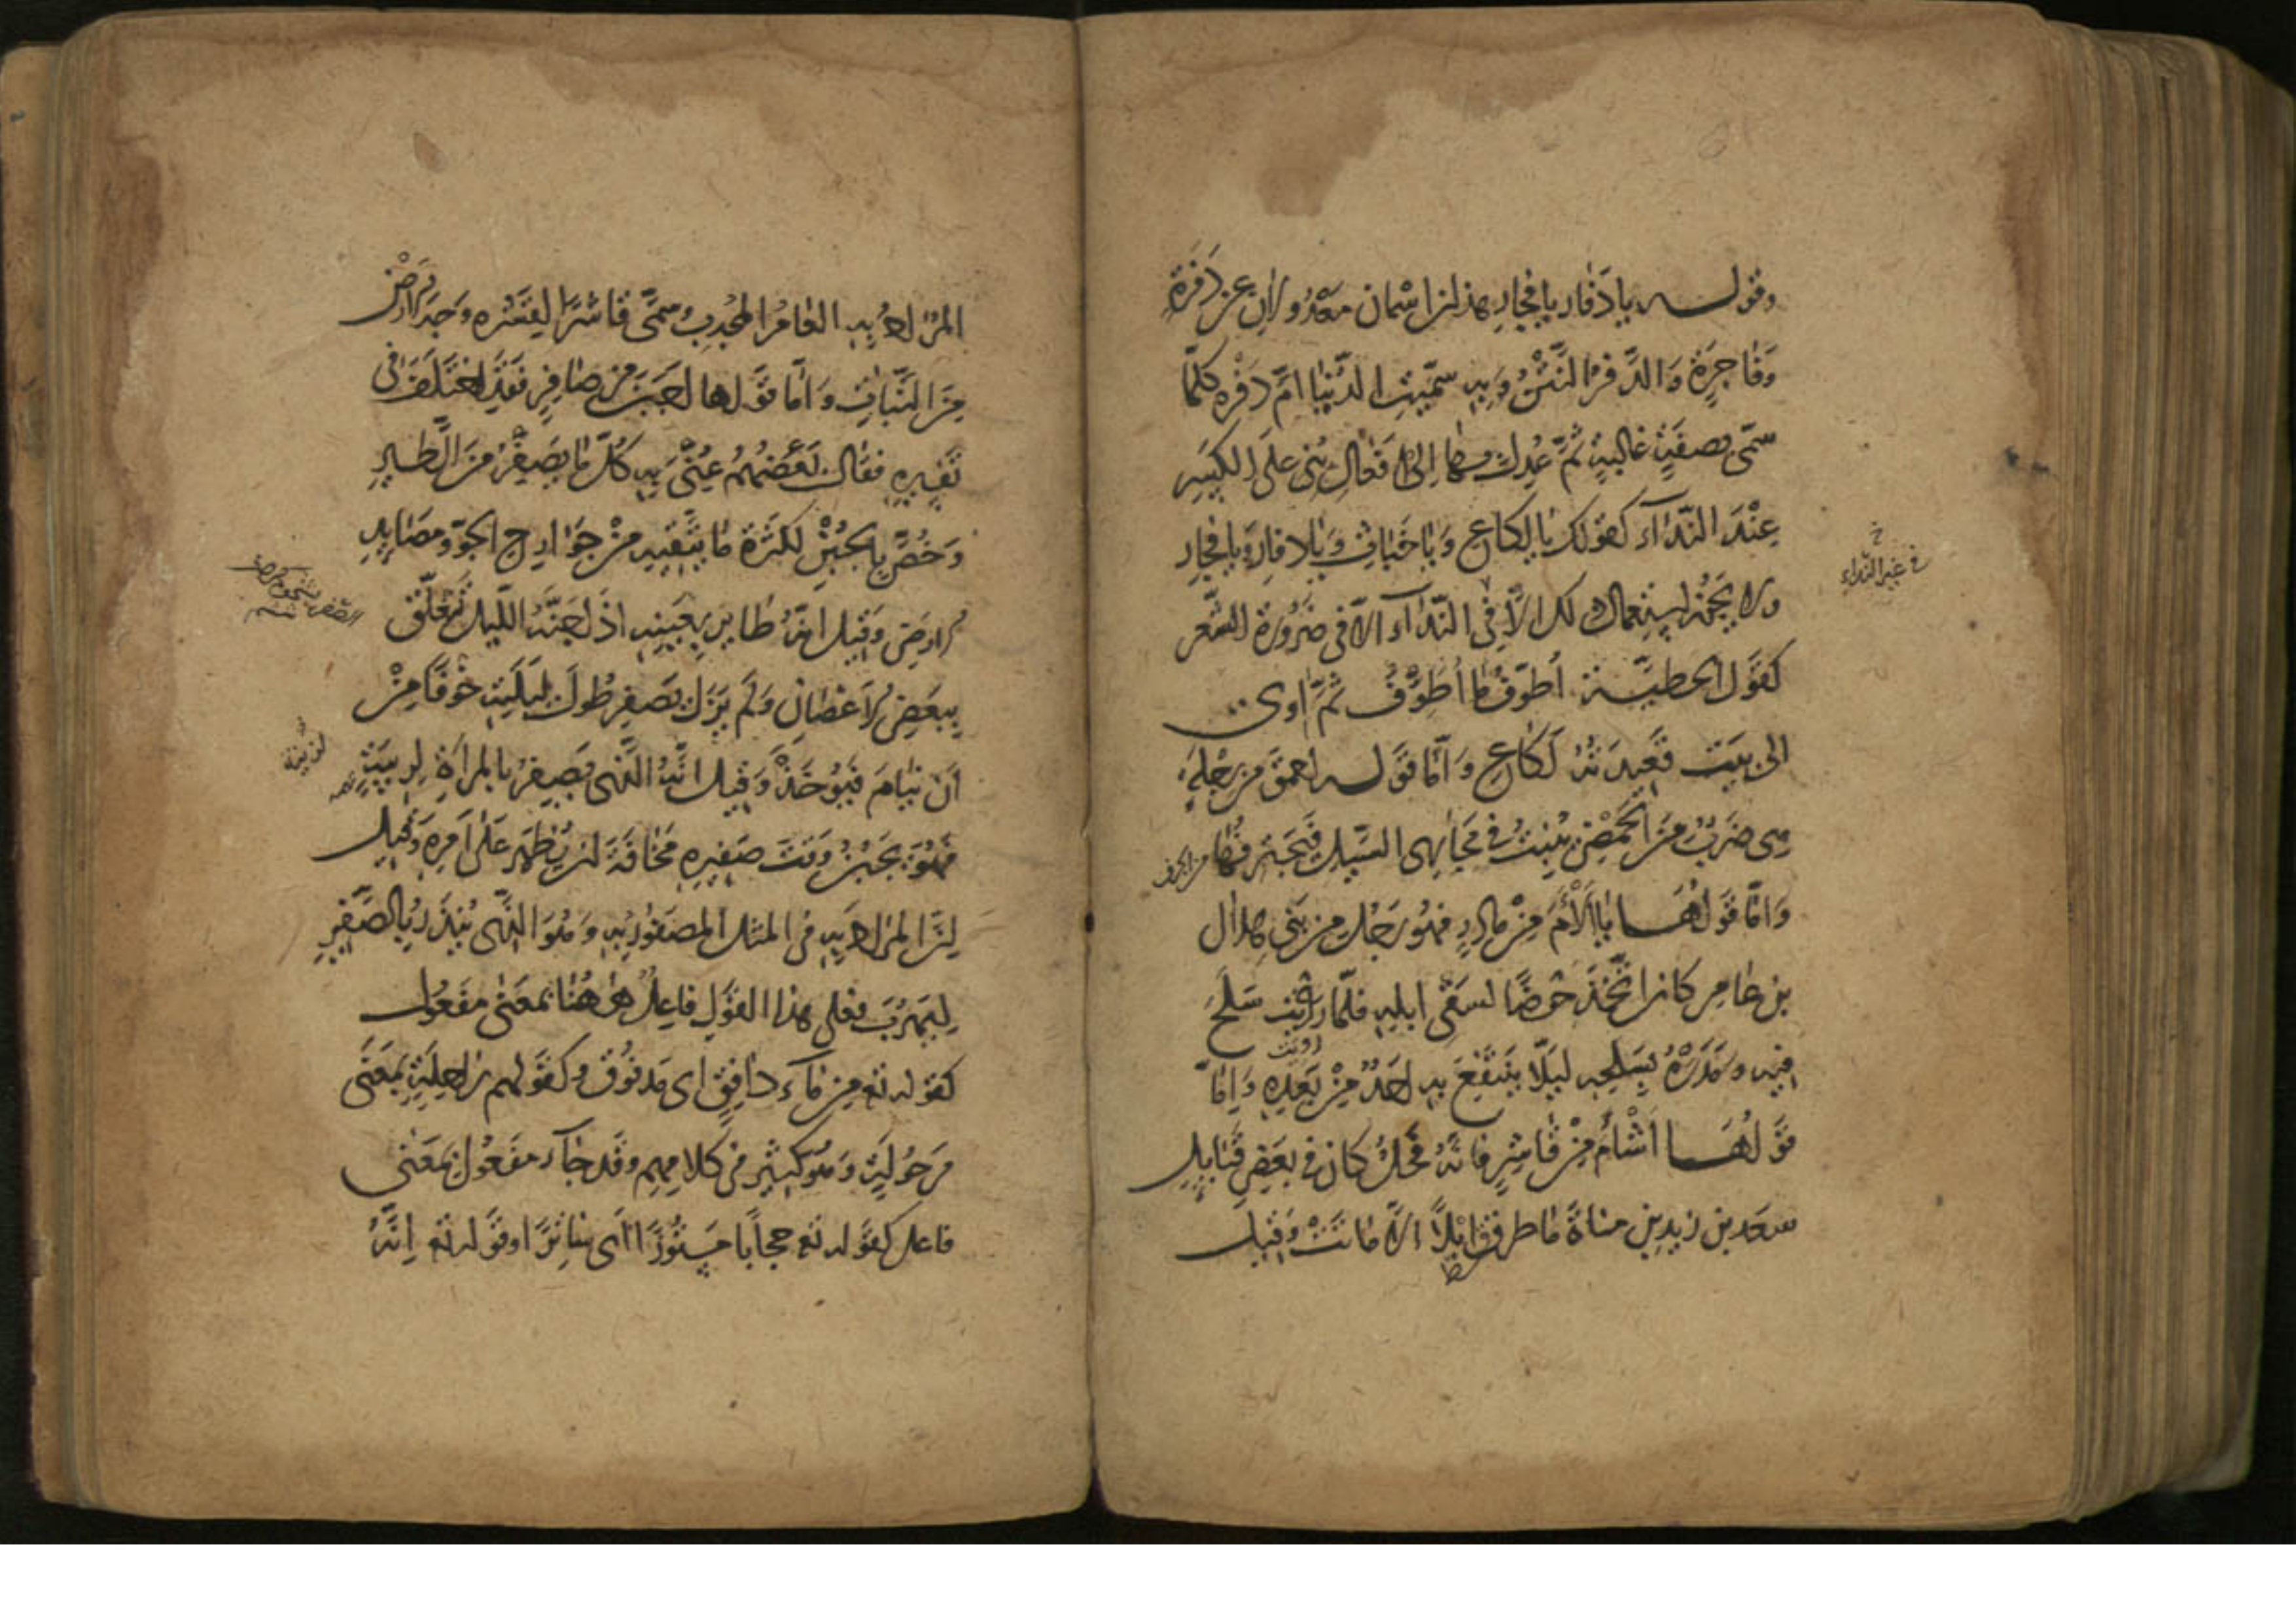 وقوله يا دَفارِ يا فَجارِ هذان اسمان معدولان عن دَفِرَة
وَفاجِرَة وَالدَّفْرُ النَّتْنُ وَبِهِ سُمِّيَتِ الدُّنْيَا اُمَّ دَفْرٍ وكلّما
سمّى بصفةٍ غالبةٍ ثمّ عُدِلَ بها الى فَعالِ بُنِىَ عَلَى الكسرِ
عِنْدَ النّدَاءِ كقولك يا لَكاعِ وَيا خَباثِ وَيا دفارِ ويا فجارِ
ولا يجوز استعمال ذلك الّا فى النّدآء الّا فى ضرورة الشعر
كقول الحطيئة أُطوّفُ ما أُطَوِّفُ ثمّ اوى
الى بيت قعيدته لَكاعِ وَامّا قوله احمق من رِجْلَة
هى ضربٌ من الحَمْضِ ينبتُ فى مجارى السّيل فتجترفها
وَامّا قولها يا اَلْأَمَ مِنْ مادِرٍ فهو رجل من بنى هلال
بن عامر كان اتّخذ حوضًا لسقى ابله فلمّا رويت سَلَحَ
فيه ومَدَرَهُ بِسَلْحِهِ ليلّا ينتفعَ به احدٌ مِنْ بعدِهِ وَامّا
قولُها اَشْأَمُ مِنْ قاشِرٍ فانّهُ فحلٌ كان فى بعض قبايل
سعد بن زيد بن مناة ما طرق ابلًا الّا ماتت وَقيل
فى غير النّداء
المرادُ به العامُ المجدِبُ وسمّى قاشرًا لقشره وجه الارض
مِنَ النَّباتِ وَامّا قولها اجبن من صافِرٍ فقد اختلف فى
تفسيره فقال بعضهم عُنِىَ به كلّ ما يَصْفِرُ من الطّير
وَخُصَّ بالجُبْنِ لكثرة ما يتّقيه من جوارح الجوّ ومصايد
الارض وقيل انّه طاير بعينه اذا جنّه اللّيل تعلّق
ببعض الاغصان وَلم يزل يصفر طول ليلته خوفًا مِنْ
اَنْ ينام فيؤخذ وَقيل انّه الّذى يصفرُ بالمراةِ لريبةٍ
فهو يجبُنُ وقت صفيره مخافة ان يُظهَر على امره وَقيل
انّ المراد به فى المثل المصفور به وَهو الّذى يُنذَرُ بالصّفير
لِيَهْرُبَ فعلى هذا القول فاعِلٌ هٰهُنا بمعنى مفعول
كقوله تع من ماءٍ دافِقٍ اى مدفوق وكقولهم راحلة بمعنى
مرحولة وهو كثير فى كلامهم وقد جآء مفعول بمعنى
فاعل كقوله تع حجابًا مستورًا اى ساترًا وقوله تع اِنَّهُ